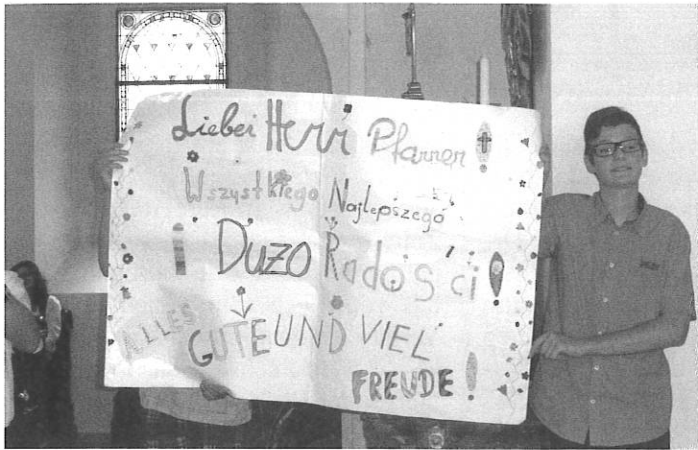 Lieber Herr Pfarrer!
Wszystkiego Najlepszego
! Dużo Radości!
ALLES
GUTE UND VIEL
FREUDE!